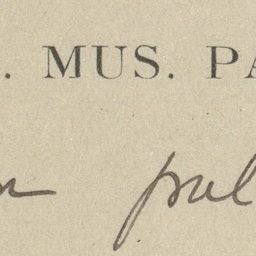 . MUS. PA
n pul